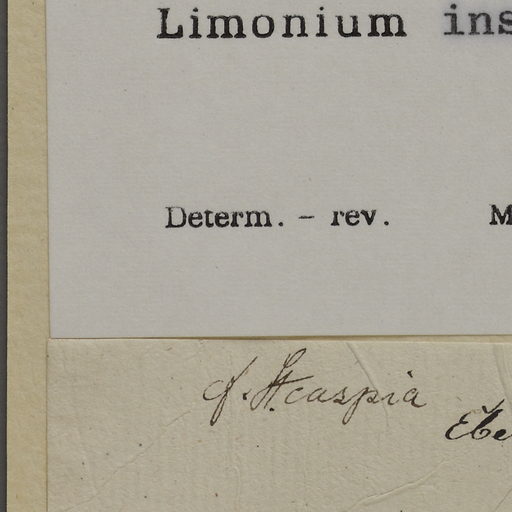 Limonium ins
Determ. - rev. M
cf. St. caspia
Ebe